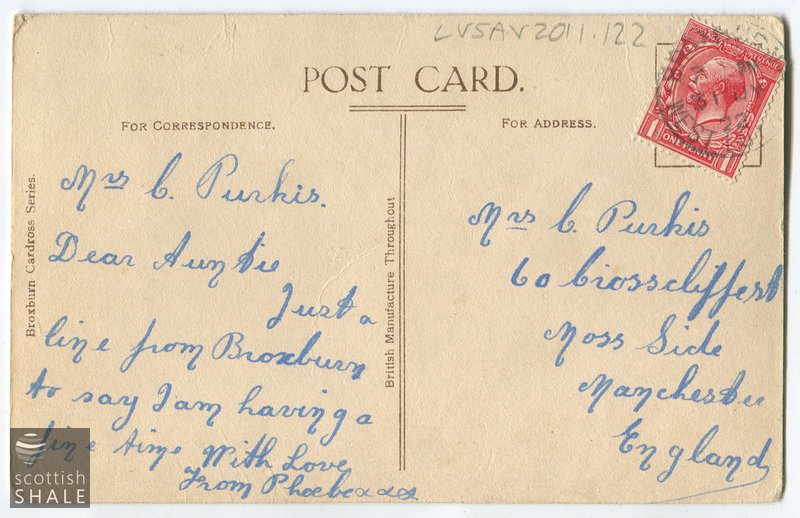 LVSAV2011.122
POST CARD.
FOR CORRESPONDENCE.
FOR ADDRESS.
POSTAGE REVENUE
ONE PENNY
Broxburn Cardross Series.
Mrs C. Purkis.
Dear Auntie
Just a
line from Broxburn
to say I am having a
fine time With Love
From Phoebe xxx
British Manufacture Throughout
Mrs C. Purkis
60 Crosscliffe st
Moss Side
Manchester
England
scottish
SHALE